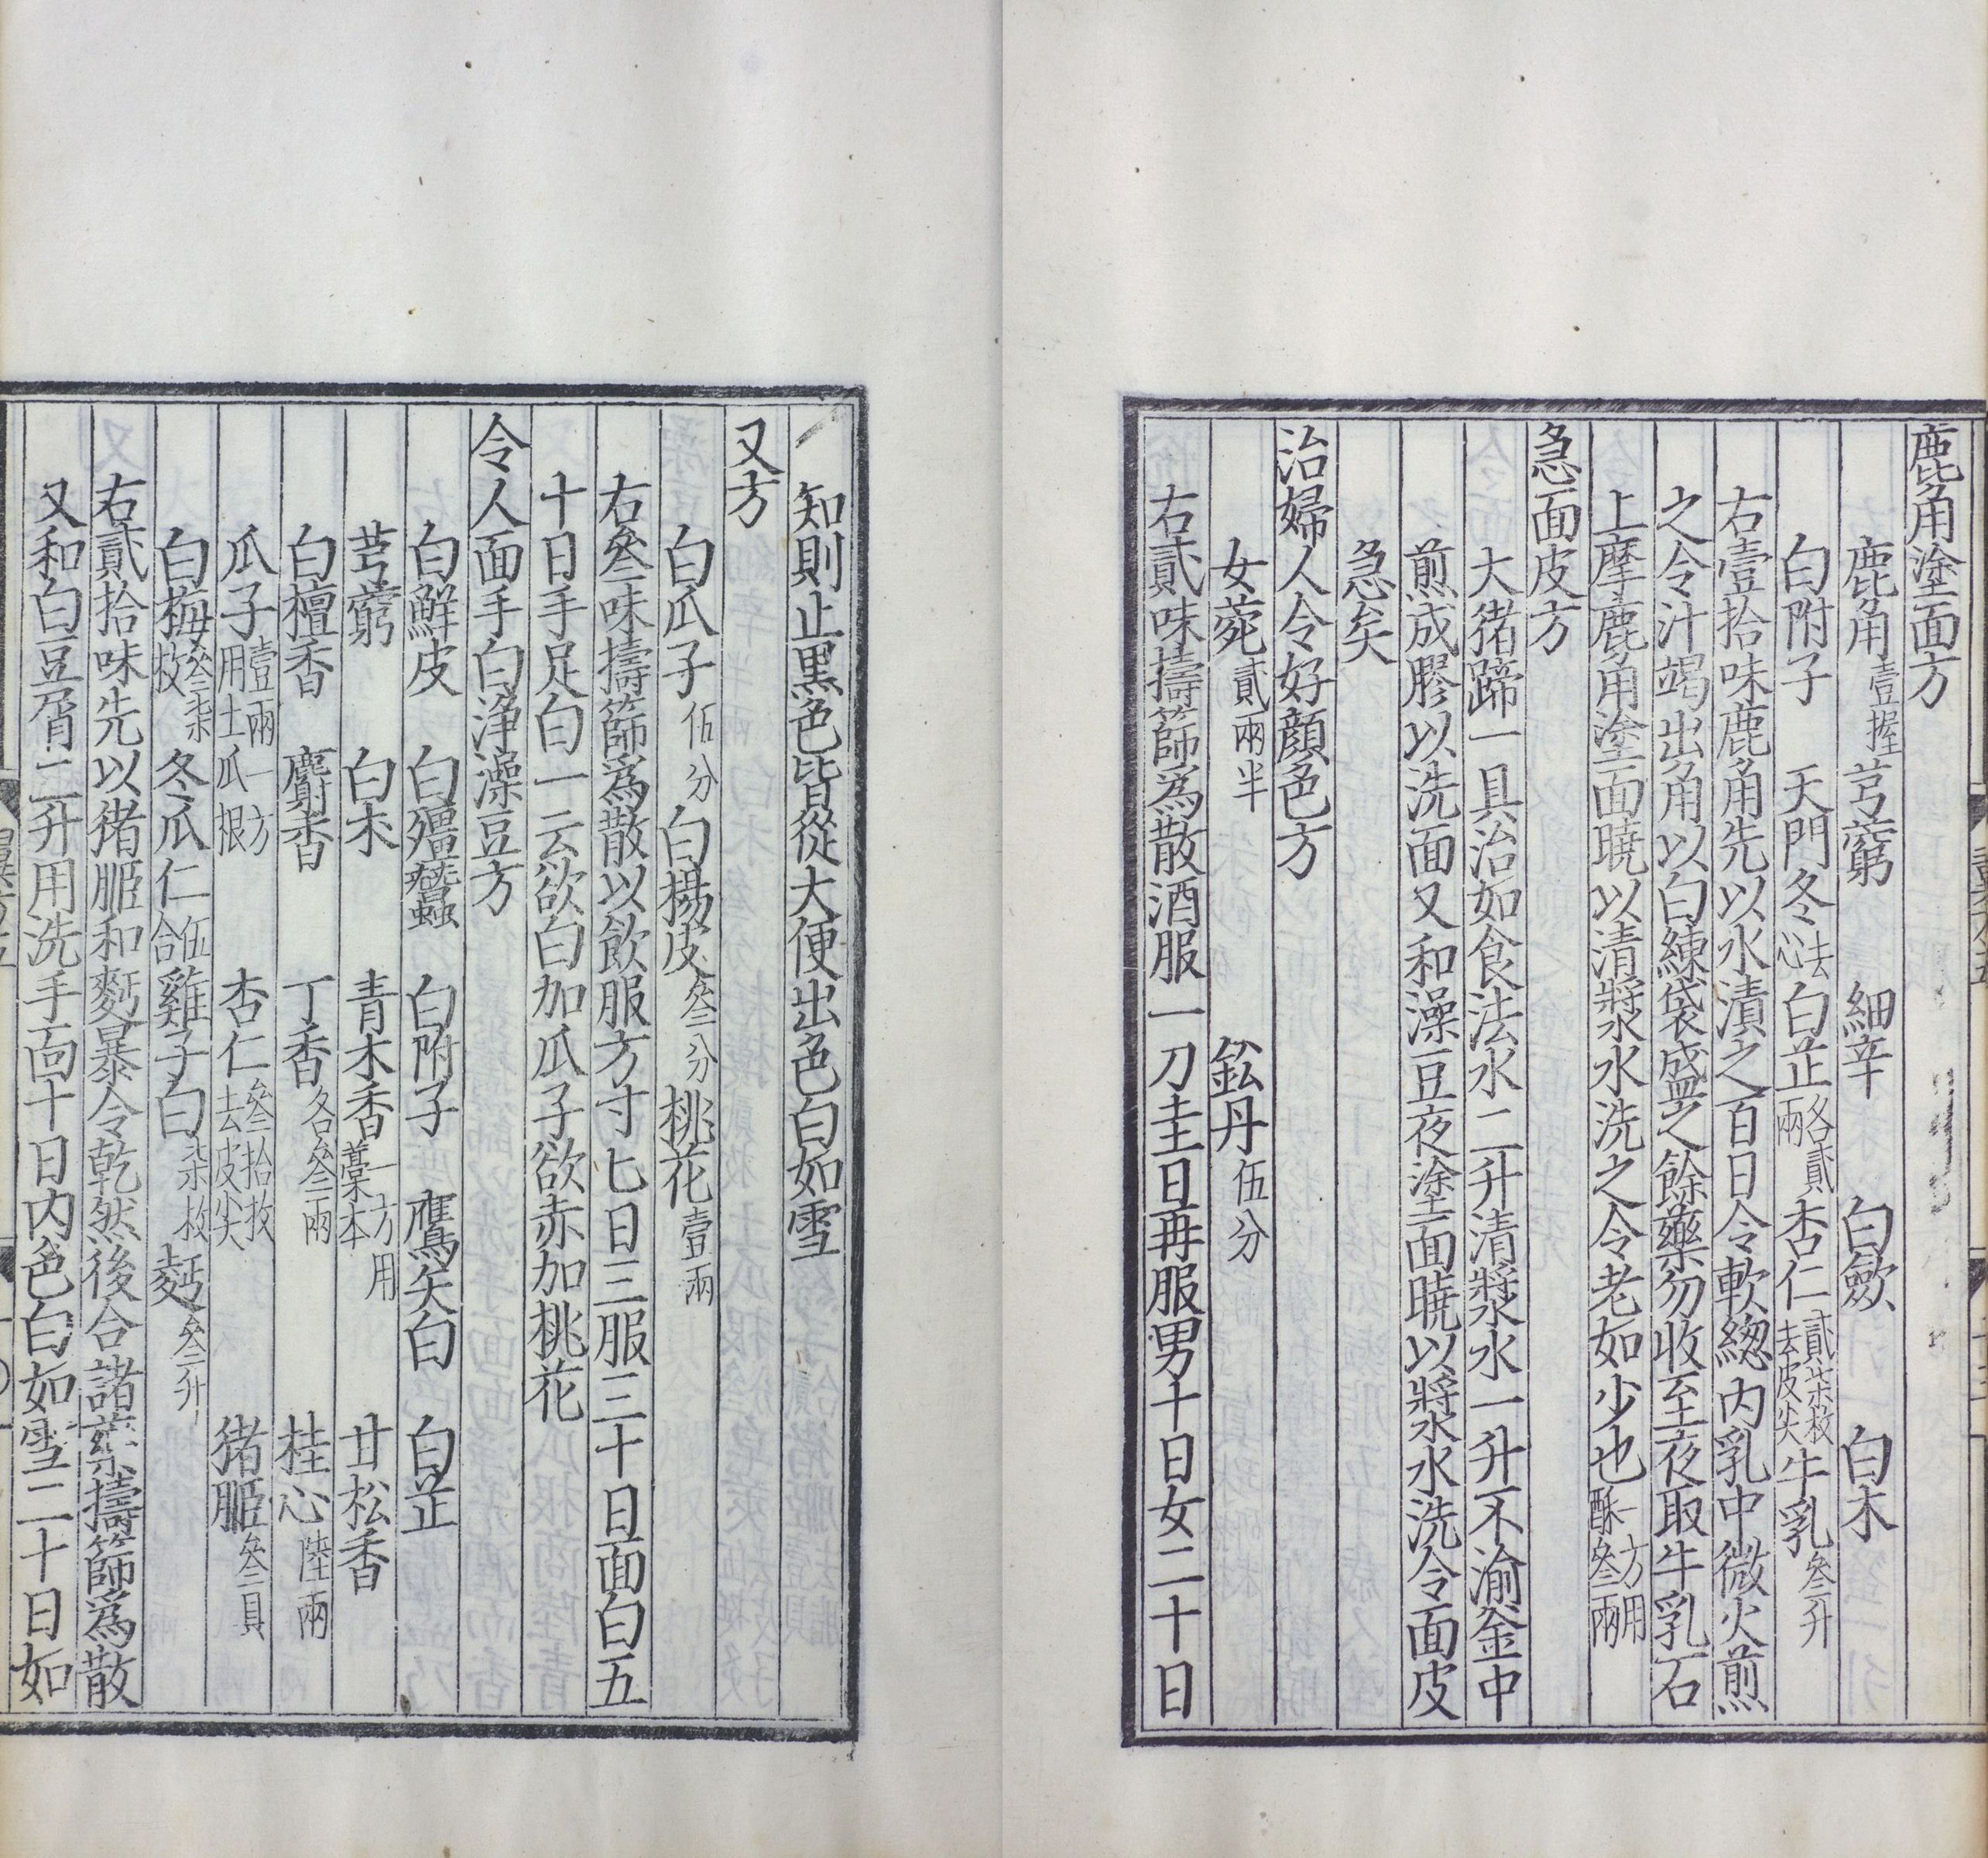 鹿角塗面方
鹿角壹握 芎藭 細辛 白歛 白木
白附子 天門冬去心 白芷各貳兩 杏仁貳柒枚去皮尖 牛乳叁升
右壹拾味鹿角先以水漬之百日令軟緫内乳中微火煎
之令汁竭出角以白練袋盛之餘藥勿收至夜取牛乳石
上摩鹿角塗面曉以清漿水洗之令老如少也一方用酥叁兩
急面皮方
大猪蹄一具治如食法水二升清漿水一升不渝釜中
煎成膠以洗面又和澡豆夜塗面曉以漿水洗令面皮
急矣
治婦人令好顔色方
女菀貳兩半 鈆丹伍分
右貳味擣篩爲散酒服一刀圭日再服男十日女二十日
知則止黒色皆從大便出色白如雪
又方
白瓜子伍分 白楊皮叁分 桃花壹兩
右叁味擣篩爲散以飲服方寸匕日三服三十日面白五
十日手足白一云欲白加瓜子欲赤加桃花
令人面手白淨澡豆方
白鮮皮 白殭蠶 白附子 鷹矢白 白芷
芎藭 白朩 青木香一方用藁本 甘松香
白檀香 麝香 丁香各叁兩 桂心陸兩
瓜子壹兩一方用土瓜根 杏仁叁拾枚去皮尖 猪𦜝叁具
白梅叁柒枚 冬瓜仁伍合 雞子白柒枚 麪叁升
右貳拾味先以猪𦜝和麪暴令乾然後合諸藥擣篩爲散
又和白豆屑二升用洗手面十日内色白如雪二十日如